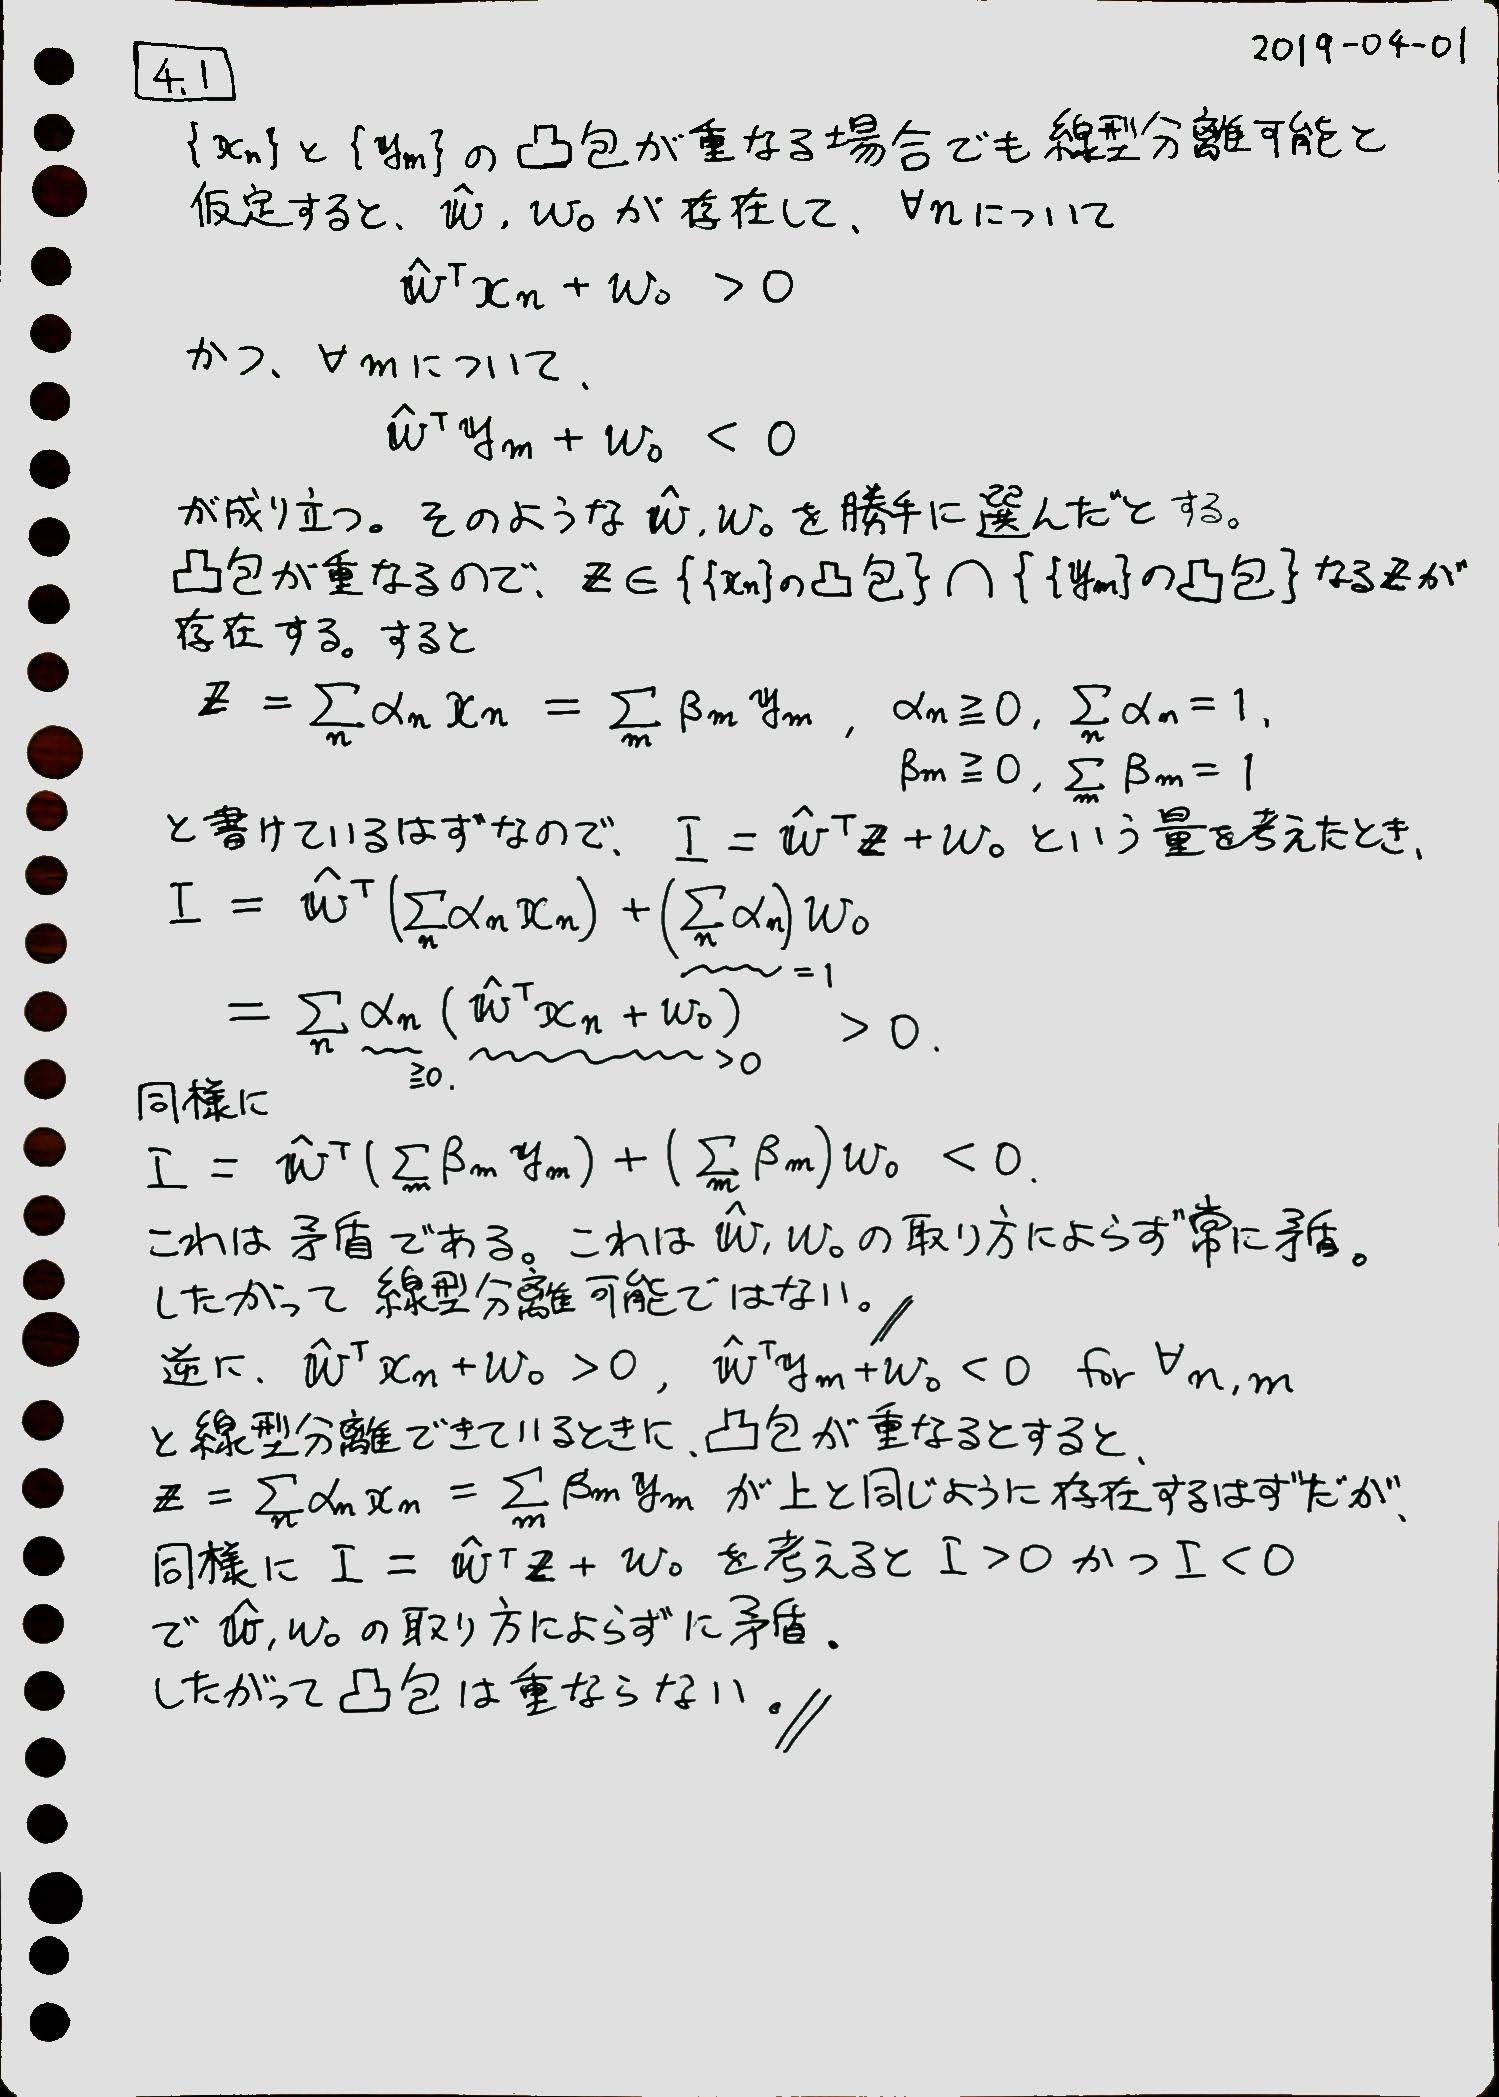 2019-04-01
4.1
{xₙ}と{yₘ}の凸包が重なる場合でも線型分離可能と
仮定すると、ŵ, w₀が存在して、∀nについて
ŵᵀxₙ + w₀ > 0
かつ、∀mについて、
ŵᵀyₘ + w₀ < 0
が成り立つ。そのようなŵ, w₀を勝手に選んだとする。
凸包が重なるので、z ∈ {{xₙ}の凸包} ∩ {{yₘ}の凸包} なるzが
存在する。すると
z = Σₙ αₙ xₙ = Σₘ βₘ yₘ , αₙ ≧ 0, Σₙ αₙ = 1,
βₘ ≧ 0, Σₘ βₘ = 1
と書けているはずなので、I = ŵᵀz + w₀ という量を考えたとき、
I = ŵᵀ(Σₙ αₙ xₙ) + (Σₙ αₙ) w₀
= 1
= Σₙ αₙ (ŵᵀxₙ + w₀) > 0.
≧0. >0
同様に
I = ŵᵀ(Σₘ βₘ yₘ) + (Σₘ βₘ) w₀ < 0.
これは矛盾である。これはŵ, w₀の取り方によらず常に矛盾。
したがって線型分離可能ではない。//
逆に、ŵᵀxₙ + w₀ > 0, ŵᵀyₘ + w₀ < 0 for ∀n, m
と線型分離できているときに、凸包が重なるとすると、
z = Σₙ αₙ xₙ = Σₘ βₘ yₘ が上と同じように存在するはずだが、
同様に I = ŵᵀz + w₀ を考えると I > 0 かつ I < 0
で ŵ, w₀ の取り方によらずに矛盾.
したがって凸包は重ならない.//